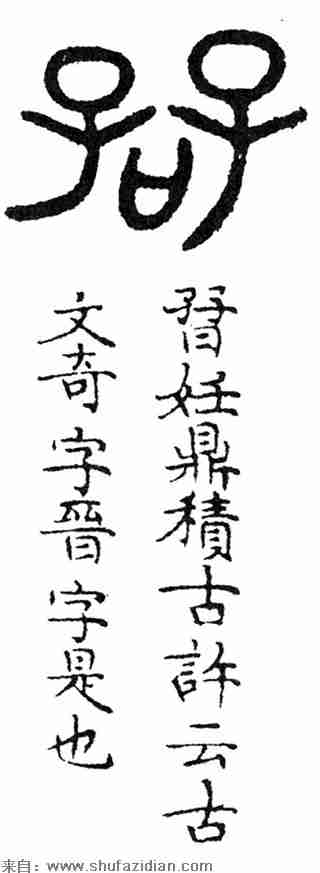 㬜妊鼎積古許云古
文奇字晉字是也
来自：www.shufazidian.com